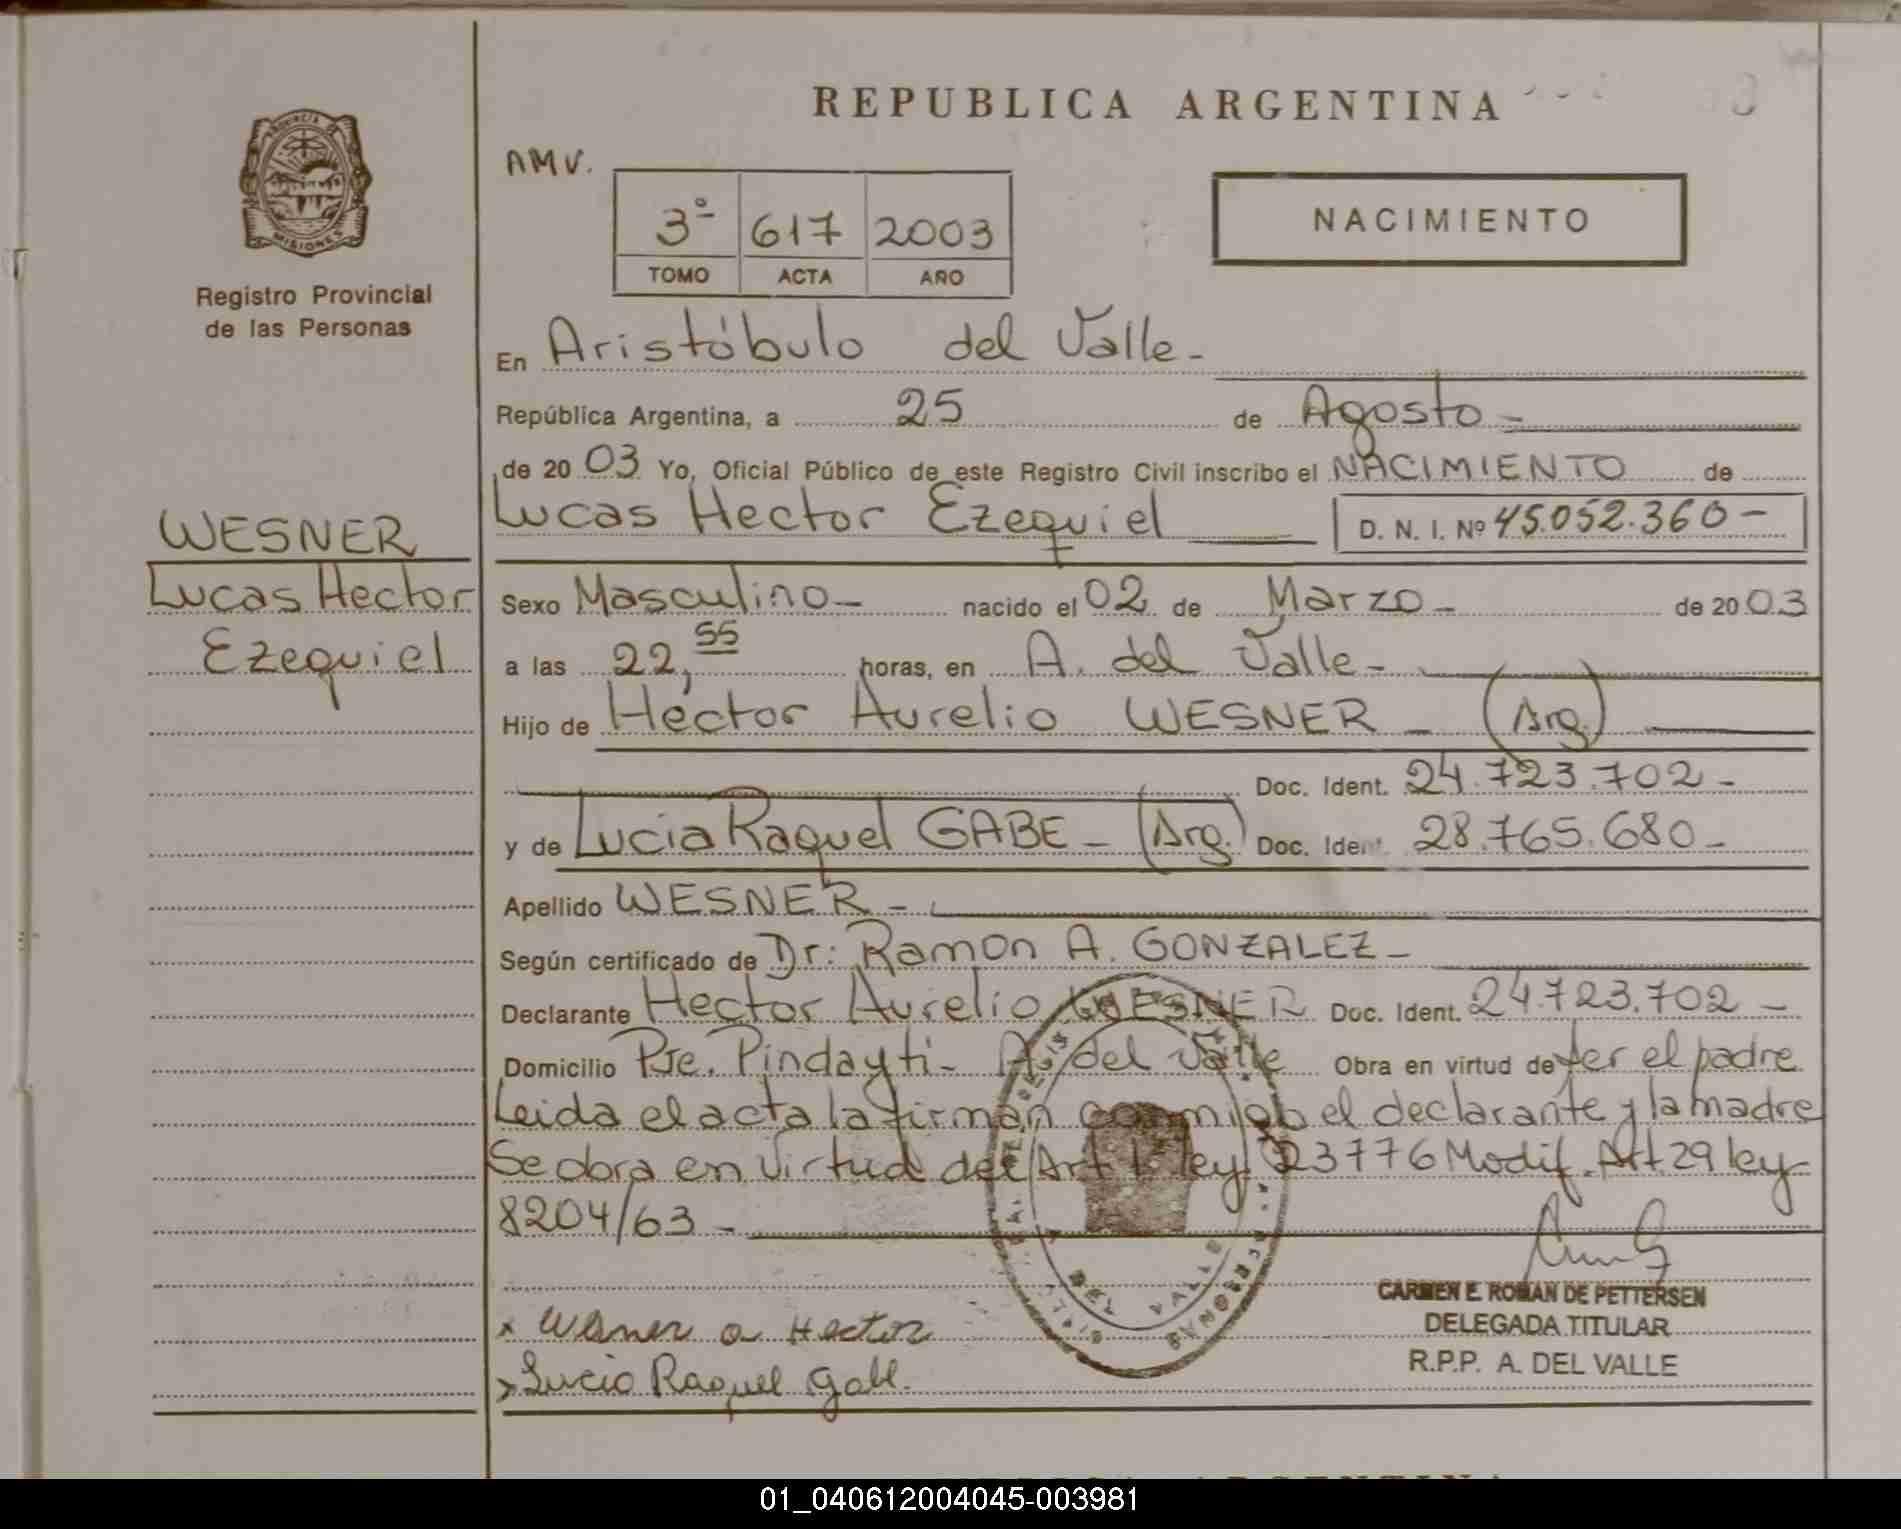 REPUBLICA ARGENTINA
PROVINCIA DE
MISIONES
Registro Provincial
de las Personas
AMV.
3º 617 2003
TOMO ACTA AÑO
NACIMIENTO
En Aristóbulo del Valle-
República Argentina, a 25 de Agosto-
de 2003 Yo, Oficial Público de este Registro Civil inscribo el NACIMIENTO de
Lucas Hector Ezequiel D. N. I. Nº 45.052.360-
WESNER
Lucas Hector
Ezequiel
Sexo Masculino- nacido el 02 de Marzo- de 2003
a las 22,55 horas, en A. del Valle-
Hijo de Hector Aurelio WESNER- (Arg.)
Doc. Ident. 24.723.702-
y de Lucia Raquel GABE- (Arg.) Doc. Ident. 28.765.680-
Apellido WESNER-
Según certificado de Dr: Ramon A. GONZALEZ-
Declarante Hector Aurelio WESNER Doc. Ident. 24.723.702-
Domicilio Pje. Pindayti- A. del Valle Obra en virtud de ser el padre
Leida el acta la firman conmigo el declarante y la madre
Se obra en virtud del Art 1º ley 23776 Modif. Art 29 ley
8204/63-
CARMEN E. ROMAN DE PETTERSEN
DELEGADA TITULAR
R.P.P. A. DEL VALLE
x Wesner a Hector
x Lucia Raquel Gabe.
01_040612004045-003981